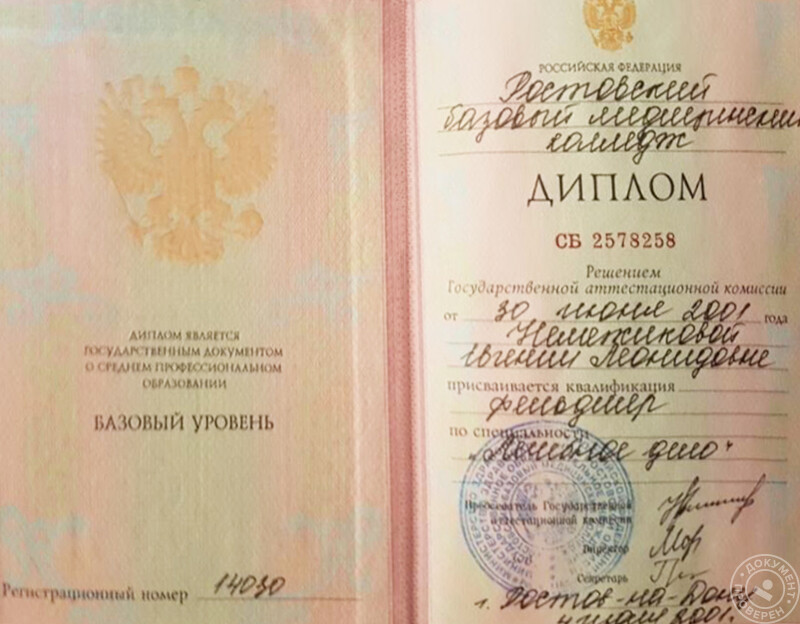 ДИПЛОМ ЯВЛЯЕТСЯ
ГОСУДАРСТВЕННЫМ ДОКУМЕНТОМ
О СРЕДНЕМ ПРОФЕССИОНАЛЬНОМ
ОБРАЗОВАНИИ
БАЗОВЫЙ УРОВЕНЬ
Регистрационный номер 14030
РОССИЙСКАЯ ФЕДЕРАЦИЯ
Ростовский
базовый медицинский
колледж
ДИПЛОМ
СБ 2578258
Решением
Государственной аттестационной комиссии
от 30 июня 2001 года
Немежиковой
Евгении Леонидовне
присваивается квалификация
фельдшер
по специальности
„Лечебное дело"
Председатель Государственной
аттестационной комиссии
Директор
Секретарь
г. Ростов-на-Дону
2001.
ДОКУМЕНТ
ПРОВЕРЕН